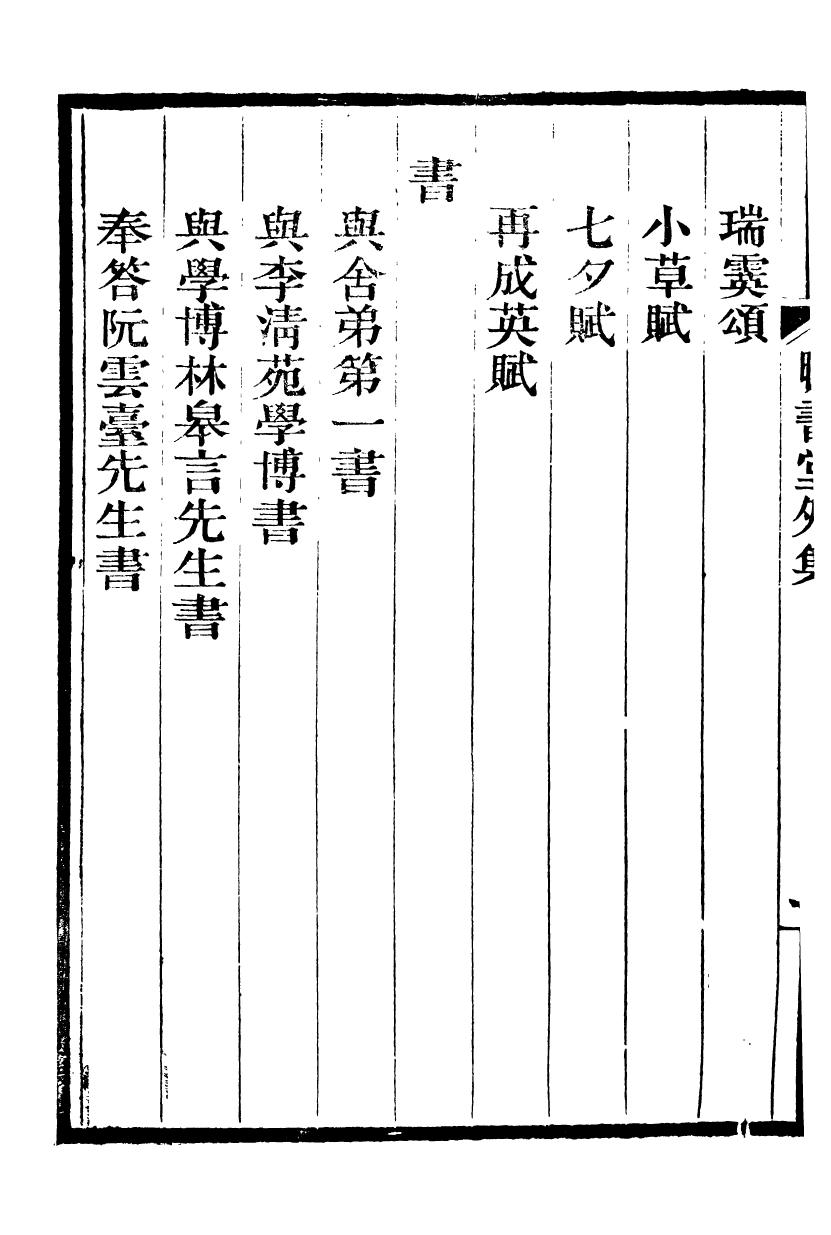 書堂外集
瑞霙頌
小草賦
七夕賦
再成英賦
書
與舍弟第一書
與李清苑學博書
與學博林皋言先生書
奉答阮雲臺先生書